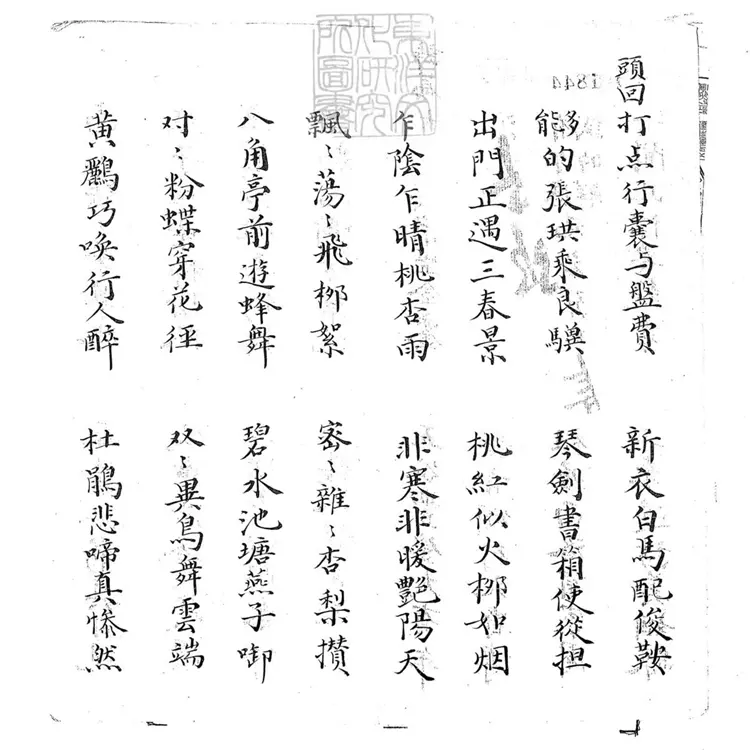 頭回打点行囊与盤費 新衣白馬配俊鞍
能够的張珙乘良驥 琴劍書箱使從担
出門正遇三春景 桃紅似火桺如烟
乍陰乍晴桃杏雨 非寒非暖艷陽天
飄〻蕩〻飛桺絮 密〻雜〻杏梨攢
八角亭前遊蜂舞 碧水池塘燕子啣
对〻粉蝶穿花徑 双〻異鳥舞雲端
黄鸝巧喚行人醉 杜鵑悲啼真惨然
1844